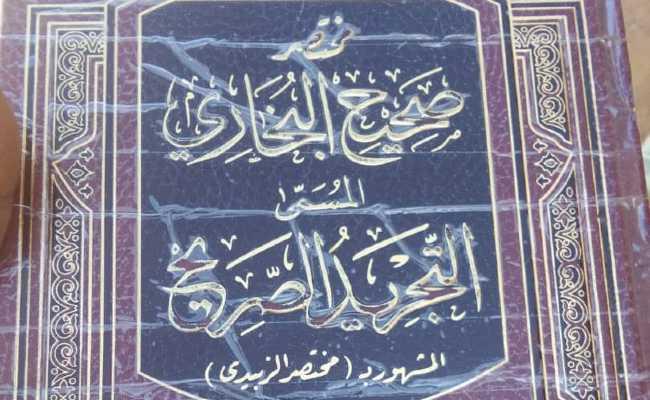 مختصر
صَحِيحُ البُخَارِي
المُسَمَّى
التَّجْرِيدُ الصَّرِيحُ
المشهور بـ (مختصر الزبيدي)